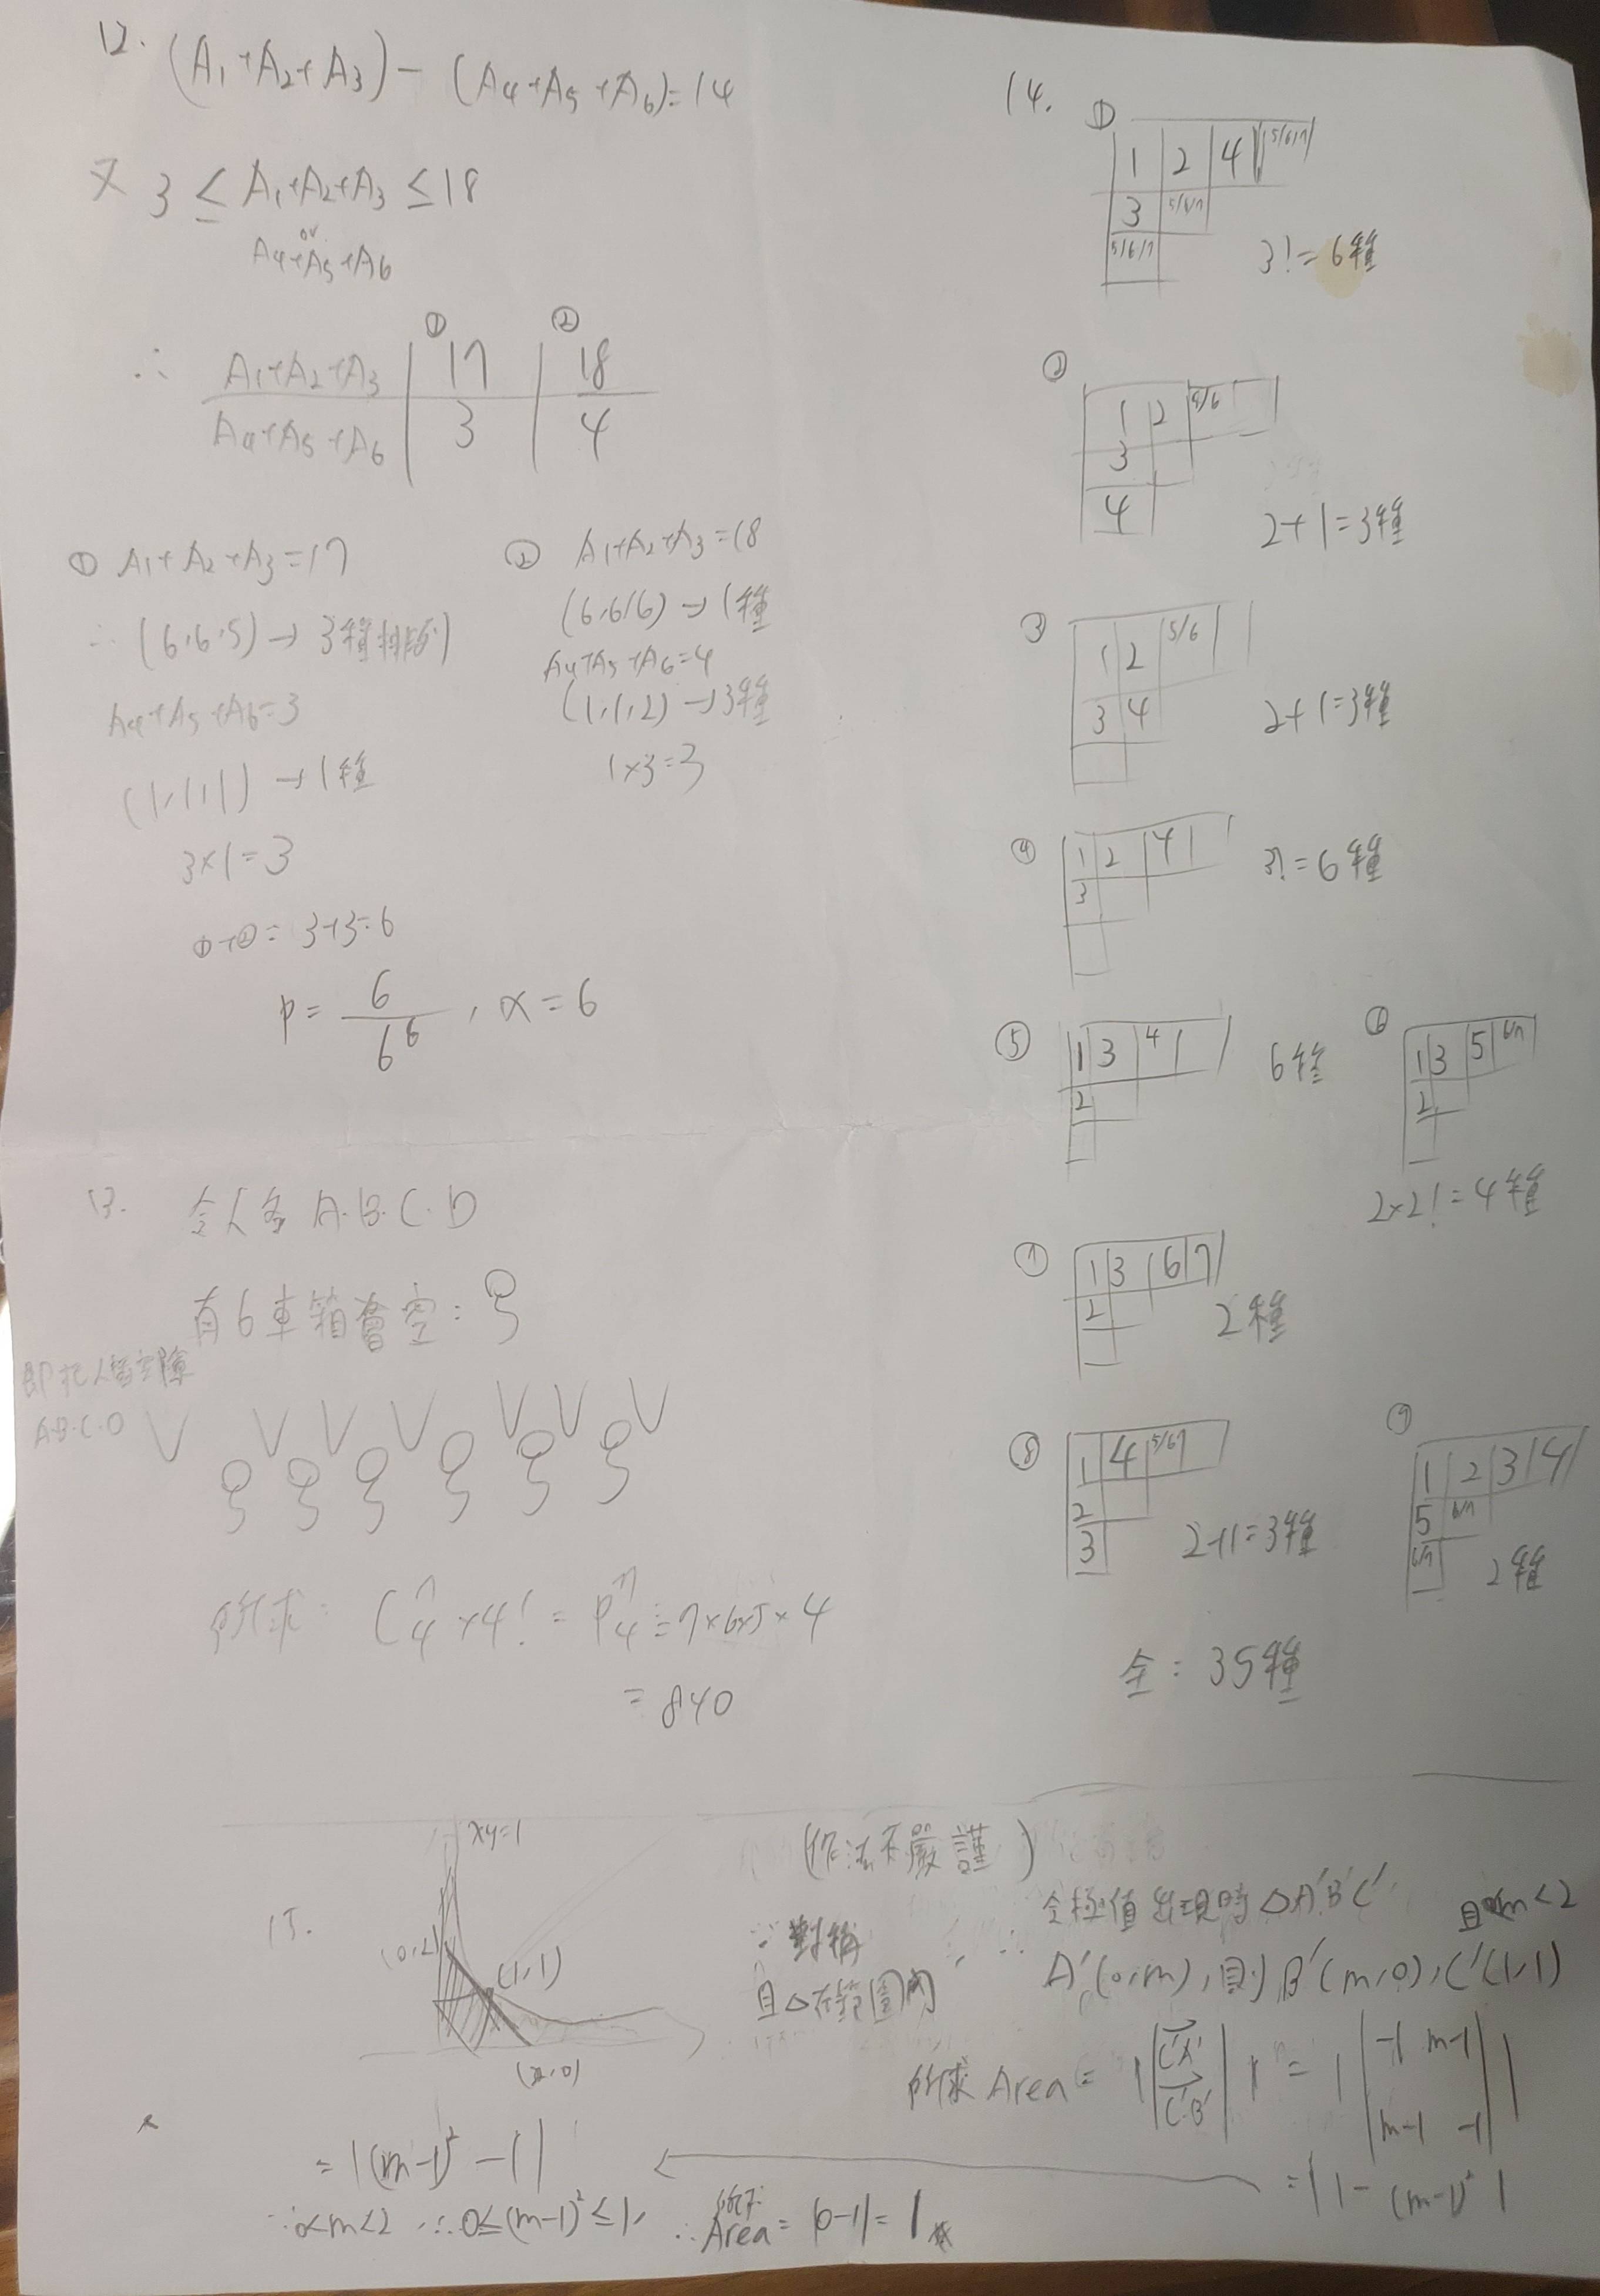 12. (A₁+A₂+A₃) - (A₄+A₅+A₆)=14
又 3 ≤ A₁+A₂+A₃ ≤ 18
or
A₄+A₅+A₆
① ②
∴ A₁+A₂+A₃ 17 18
A₄+A₅+A₆ 3 4
① A₁+A₂+A₃=17
∴ (6,6,5) → 3種排列
A₄+A₅+A₆=3
(1,1,1) → 1種
3×1=3
①+②= 3+3=6
P= 6/6⁶ , α=6
② A₁+A₂+A₃=18
(6,6,6) → 1種
A₄+A₅+A₆=4
(1,1,2) → 3種
1×3=3
13. 令人名 A.B.C.D
有6車箱會空:
即把人留空隙
A.B.C.D V V V V V V V
所求: C⁷₄ ×4! = P⁷₄ =7×6×5×4
= 840
14. ①
1 2 4 5/6/7
3 5/6/7
5/6/7
3!=6種
②
1 2 5/6
3
4
2+1=3種
③
1 2 5/6
3 4
2+1=3種
④
1 2 4
3
3!=6種
⑤
1 3 4
2
6種
⑥
1 3 5 6/7
2
2×2!=4種
⑦
1 3 6 7
2
2種
⑧
1 4 5/6/7
2
3
2+1=3種
⑨
1 2 3 4
5 6/7
6/7
2種
全: 35種
15.
xy=1
(0,2)
(1,1)
(2,0)
(作法不嚴謹)
∵對稱
且△在範圍內
∴ 令極值出現時△A'B'C' 且0<m<2
A'(0,m), 則B'(m,0), C'(1,1)
所求 Area= | |C'A' C'B'| | = | |-1 m-1 m-1 -1| |
= |1-(m-1)²|
= |(m-1)²-1|
∵0<m<2 ∴0≤(m-1)²≤1, ∴所求Area= |0-1|=1